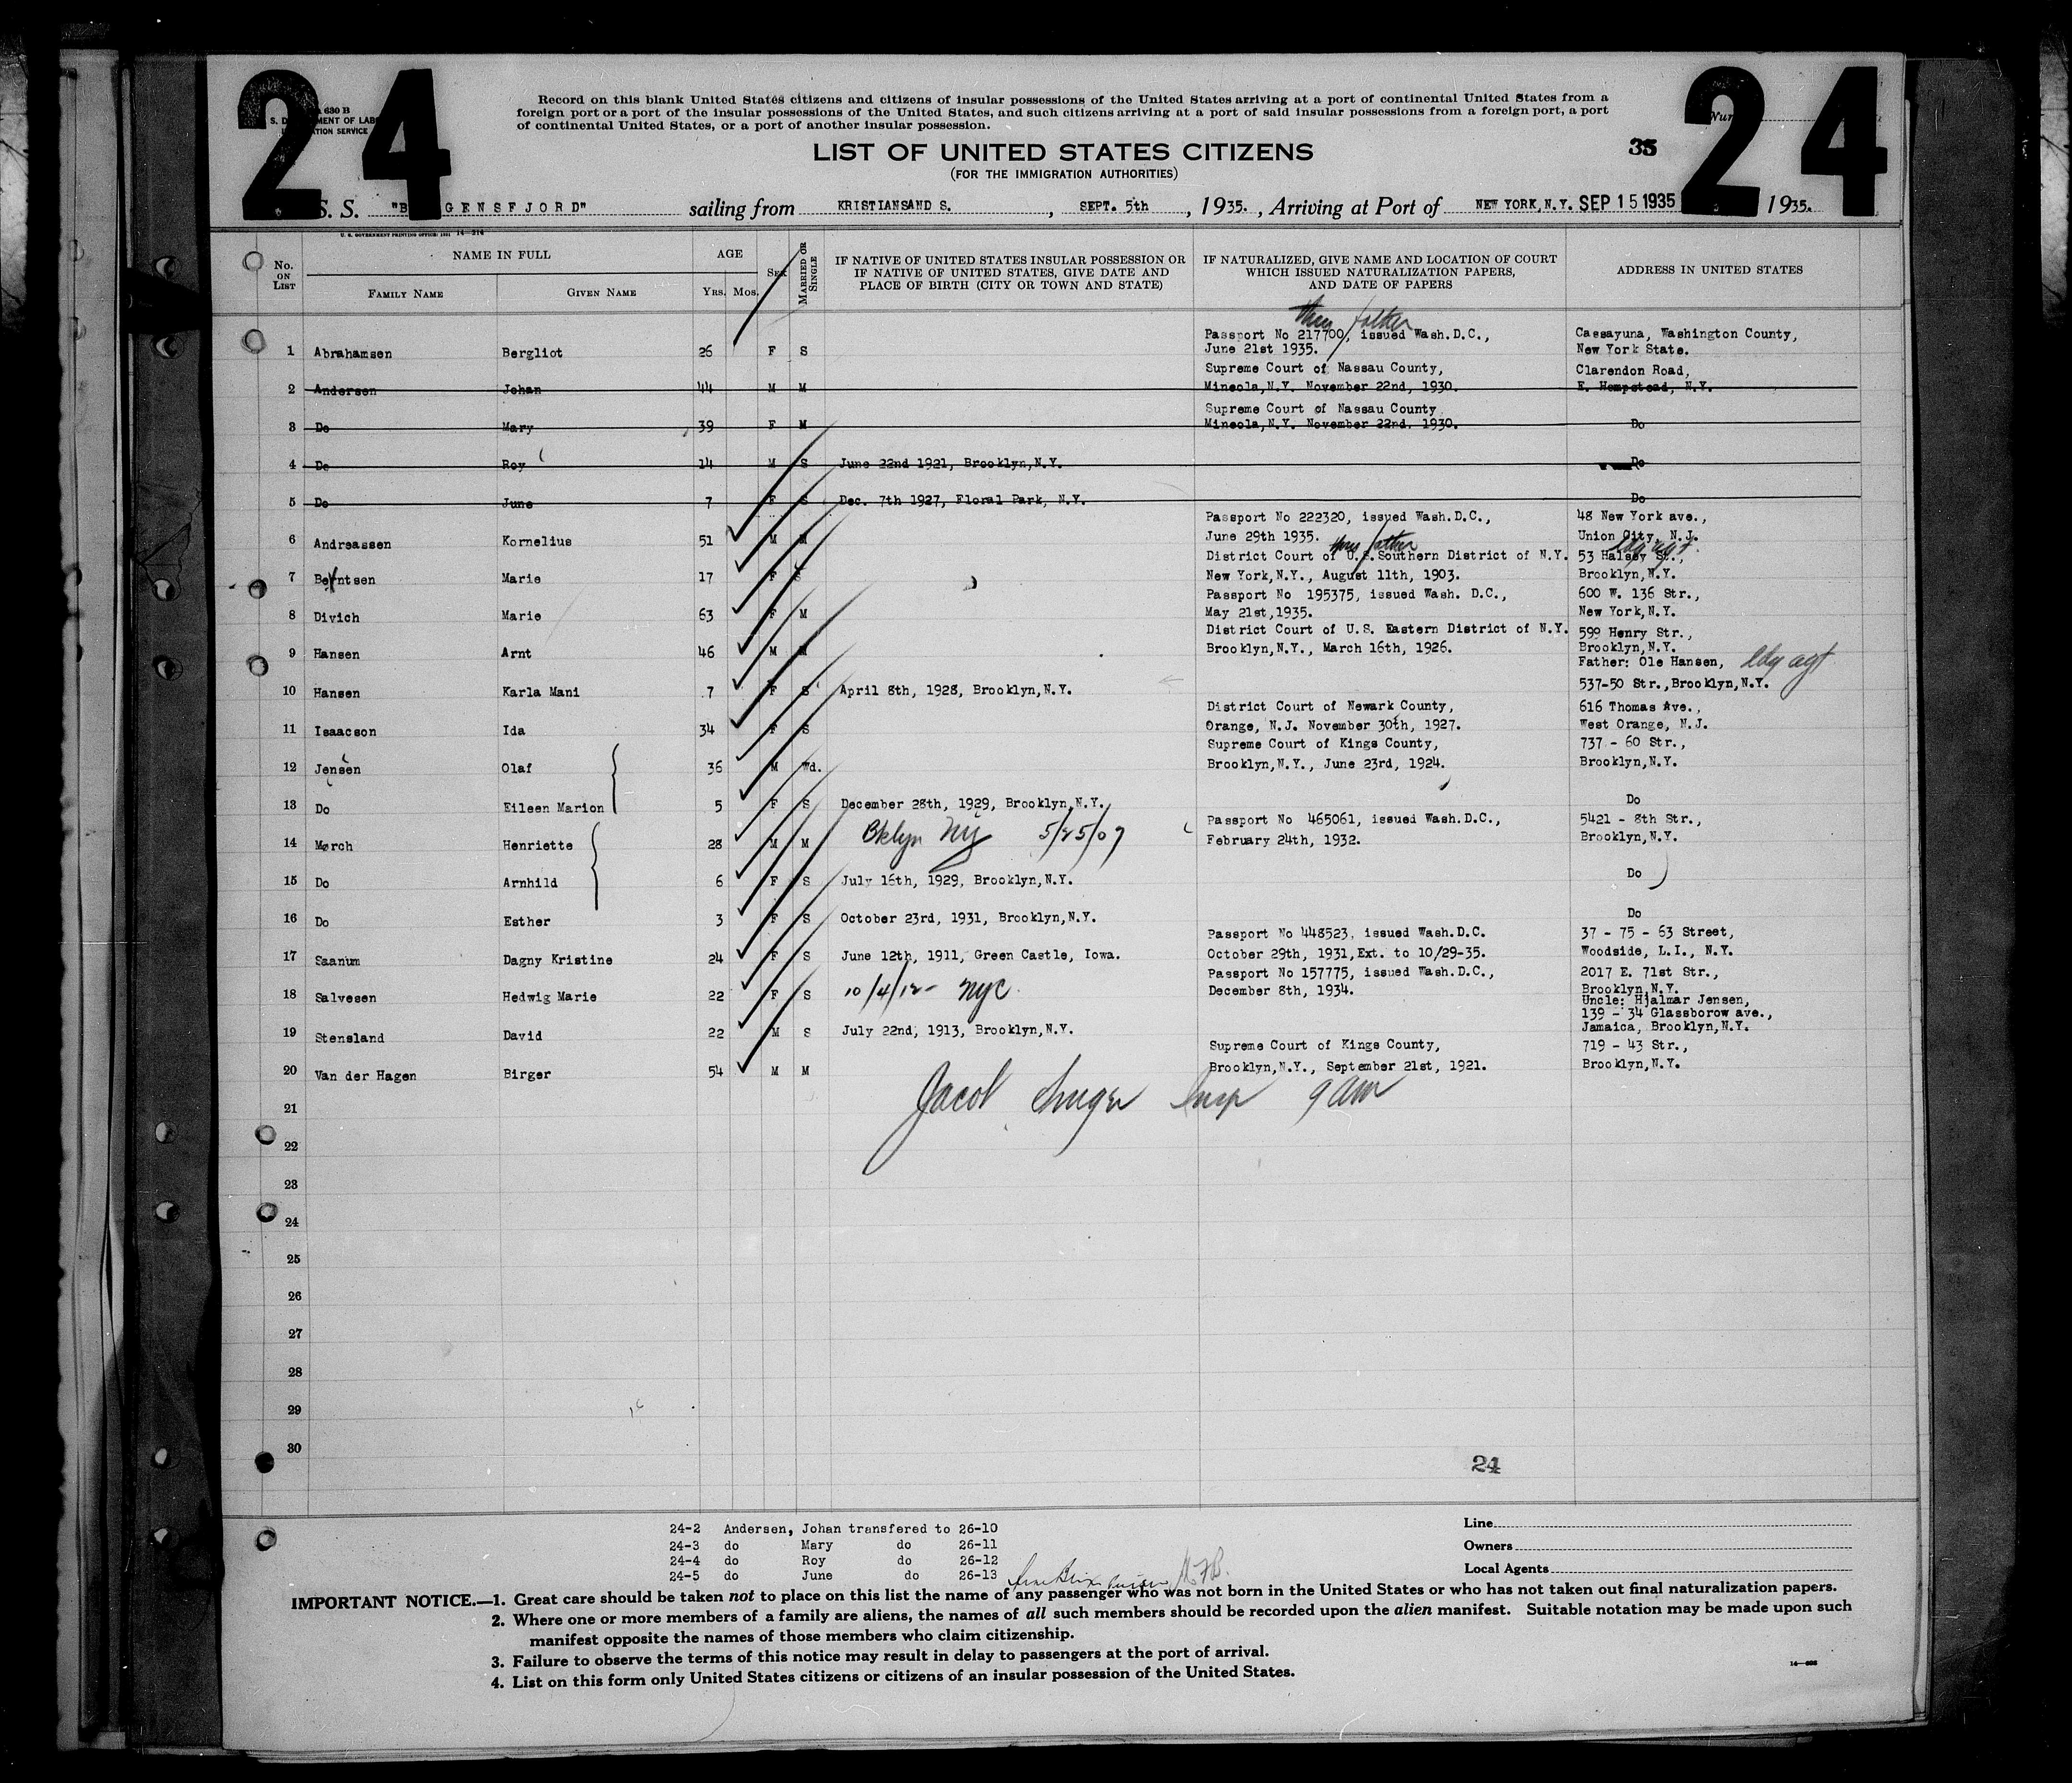 24
24
630 B
S. D MENT OF LAB
ATION SERVICE
Record on this blank United States citizens and citizens of insular possessions of the United States arriving at a port of continental United States from a
foreign port or a port of the insular possessions of the United States, and such citizens arriving at a port of said insular possessions from a foreign port, a port
of continental United States, or a port of another insular possession.
LIST OF UNITED STATES CITIZENS
35
(FOR THE IMMIGRATION AUTHORITIES)
S. S. "B GENSFJORD" sailing from KRISTIANSAND S. , SEPT. 5th , 1935. , Arriving at Port of NEW YORK, N.Y. SEP 15 1935 1935.
U. S. GOVERNMENT PRINTING OFFICE: 1931 14—214
No. ON LIST
NAME IN FULL
FAMILY NAME
GIVEN NAME
AGE
YRS. MOS.
SEX
MARRIED OR SINGLE
IF NATIVE OF UNITED STATES INSULAR POSSESSION OR
IF NATIVE OF UNITED STATES, GIVE DATE AND
PLACE OF BIRTH (CITY OR TOWN AND STATE)
IF NATURALIZED, GIVE NAME AND LOCATION OF COURT
WHICH ISSUED NATURALIZATION PAPERS,
AND DATE OF PAPERS
ADDRESS IN UNITED STATES
thru father
Passport No 217700, issued Wash.D.C., Cassayuna, Washington County,
1 Abrahamsen Bergliot 26 F S June 21st 1935. New York State.
Supreme Court of Nassau County, Clarendon Road,
2 Andersen Johan 44 M M Mineola,N.Y. November 22nd, 1930. E. Hempstead, N.Y.
Supreme Court of Nassau County
3 Do Mary 39 F M Mineola,N.Y. November 22nd, 1930. Do
4 Do Roy 14 M S June 22nd 1921, Brooklyn,N.Y. Do
5 Do June 7 F S Dec. 7th 1927, Floral Park, N.Y. Do
Passport No 222320, issued Wash.D.C., 48 New York ave.,
6 Andreassen Kornelius 51 M M June 29th 1935. Union City, N.J.
thru father ldg agt.
District Court of U.S. Southern District of N.Y. 53 Halsey St.,
7 Berntsen Marie 17 F S New York,N.Y., August 11th, 1903. Brooklyn,N.Y.
Passport No 195375, issued Wash. D.C., 600 W. 136 Str.,
8 Divich Marie 63 F M May 21st,1935. New York,N.Y.
District Court of U.S. Eastern District of N.Y. 599 Henry Str.,
9 Hansen Arnt 46 M M Brooklyn,N.Y., March 16th, 1926. Brooklyn,N.Y.
Father: Ole Hansen, ldg agt
10 Hansen Karla Mani 7 F S April 8th, 1928, Brooklyn,N.Y. 537-50 Str.,Brooklyn,N.Y.
District Court of Newark County, 616 Thomas Ave.,
11 Isaacson Ida 34 F S Orange, N.J. November 30th, 1927. West Orange, N.J.
Supreme Court of Kings County, 737 - 60 Str.,
12 Jensen Olaf 36 M Wd. Brooklyn,N.Y., June 23rd, 1924. Brooklyn,N.Y.
13 Do Eileen Marion 5 F S December 28th, 1929, Brooklyn,N.Y. Do
Passport No 465061, issued Wash.D.C., 5421 - 8th Str.,
14 Mørch Henriette 28 M M Bklyn NY 5/25/07 February 24th, 1932. Brooklyn,N.Y.
15 Do Arnhild 6 F S July 16th, 1929, Brooklyn,N.Y. Do
16 Do Esther 3 F S October 23rd, 1931, Brooklyn,N.Y. Do
Passport No 448523, issued Wash.D.C. 37 - 75 - 63 Street,
17 Saanum Dagny Kristine 24 F S June 12th, 1911, Green Castle, Iowa. October 29th, 1931,Ext. to 10/29-35. Woodside, L.I., N.Y.
Passport No 157775, issued Wash.D.C., 2017 E. 71st Str.,
18 Salvesen Hedwig Marie 22 F S 10/4/12- NYC December 8th, 1934. Brooklyn,N.Y.
Uncle: Hjalmar Jensen,
139 - 34 Glassborow ave.,
19 Stensland David 22 M S July 22nd, 1913, Brooklyn,N.Y. Jamaica, Brooklyn,N.Y.
Supreme Court of Kings County, 719 - 43 Str.,
20 Van der Hagen Birger 54 M M Brooklyn,N.Y., September 21st, 1921. Brooklyn,N.Y.
Jacob Insp 9 am
21
22
23
24
25
26
27
28
29
30
24
24-2 Andersen, Johan transfered to 26-10
24-3 do Mary do 26-11
24-4 do Roy do 26-12
24-5 do June do 26-13
Line
Owners
Local Agents
IMPORTANT NOTICE.—1. Great care should be taken not to place on this list the name of any passenger who was not born in the United States or who has not taken out final naturalization papers.
2. Where one or more members of a family are aliens, the names of all such members should be recorded upon the alien manifest. Suitable notation may be made upon such
manifest opposite the names of those members who claim citizenship.
3. Failure to observe the terms of this notice may result in delay to passengers at the port of arrival.
4. List on this form only United States citizens or citizens of an insular possession of the United States.